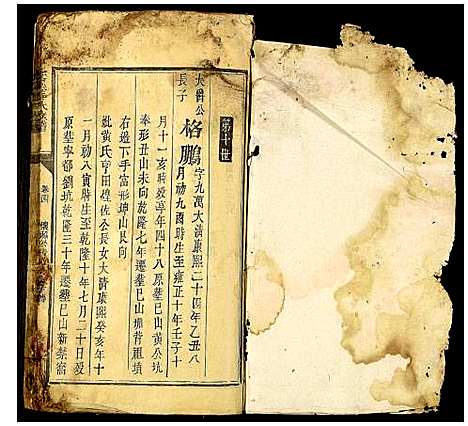 第十世
大爵公
長子
格鵬
字九萬大淸康熙二十四年乙丑八
月初九酉時生至雍正十年壬子十
月十一亥時歿享年四十八原塟巳山黃公坑
秦形丑山未向乾隆七年遷塟巳山塘背祖墳
右邊下手富形坤山艮向
妣黃氏亨田煌佐公長女大淸康熙癸亥年十
一月初八寅時生至乾隆十年七月二十日歿
原塟寧都劉坑乾隆三十年遷塟巳山新
卷四